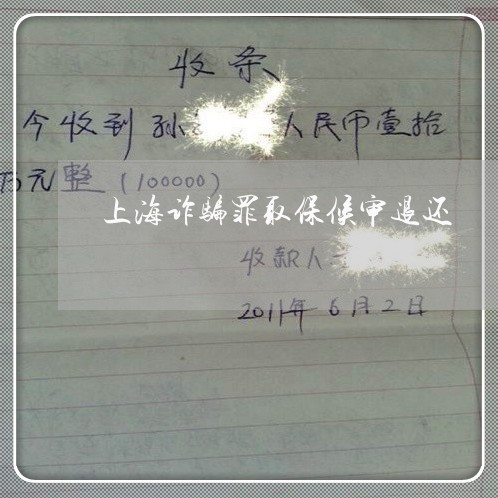 收条
今收到孙 人民币壹拾
万元整(100000)
上海诈骗罪取保候审退还
收款人
2011年6月2日